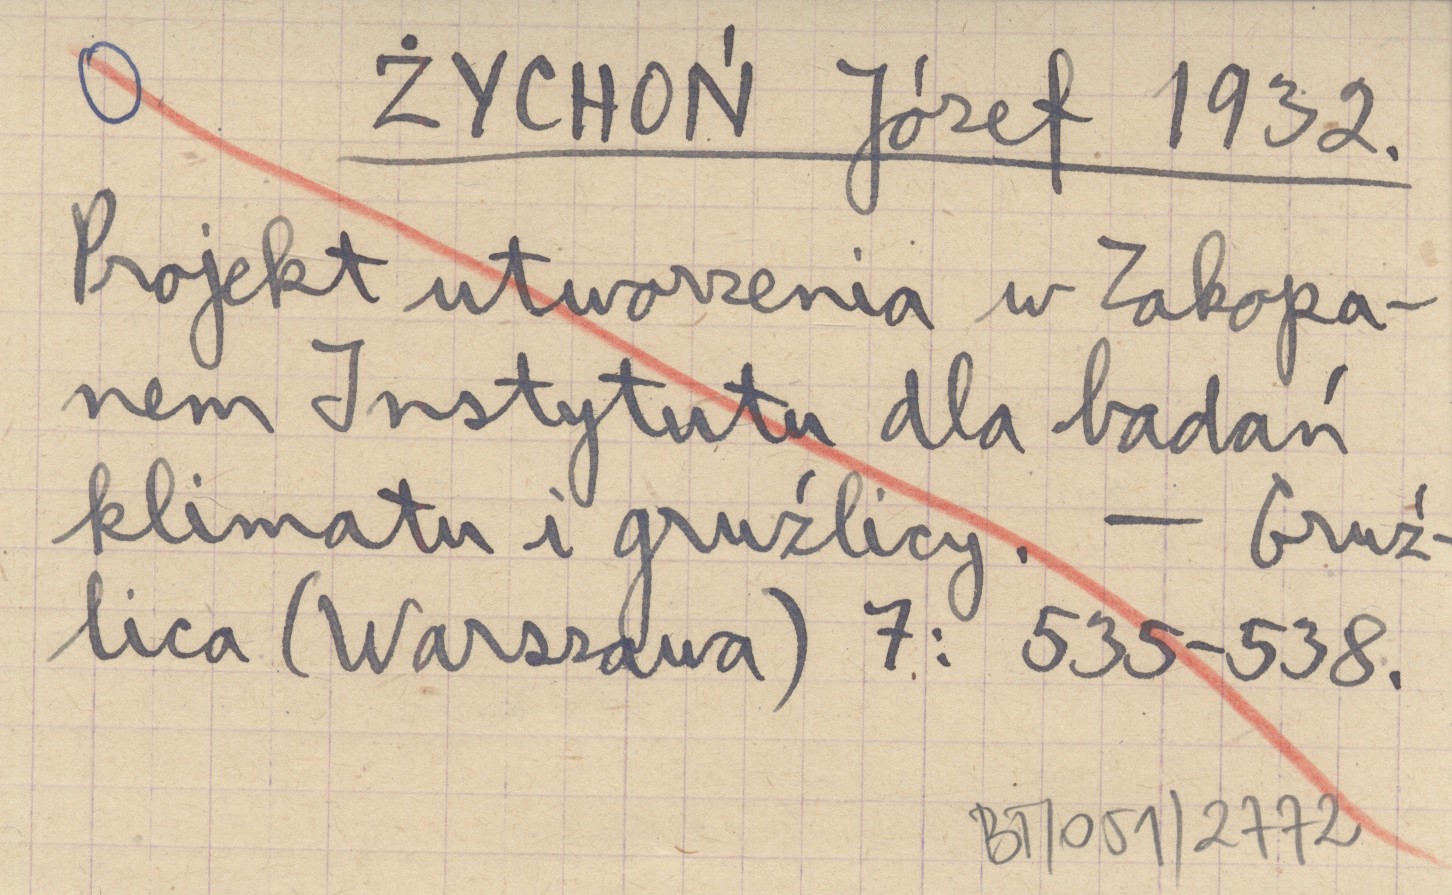 ŻYCHOŃ Józef 1932.
Projekt utworzenia w Zakopa-
nem Instytutu dla badań
klimatu i gruźlicy. — Gruź-
lica (Warszawa) 7: 535-538.
BT/051/2772